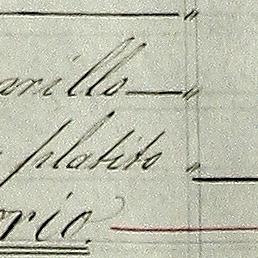 "
arillo — "
platito "
orio.